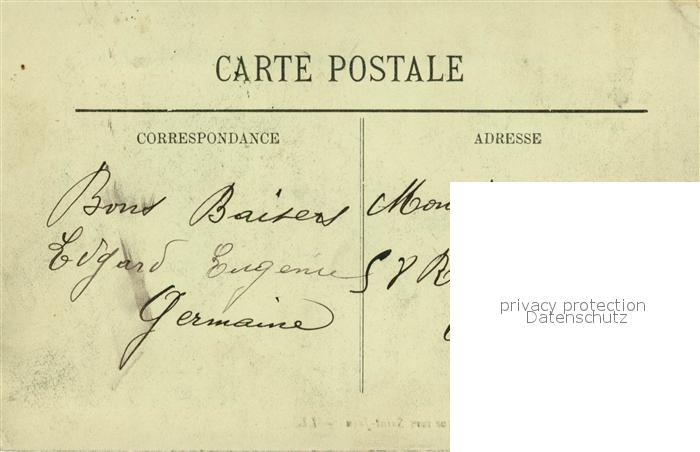 CARTE POSTALE
CORRESPONDANCE
ADRESSE
Bons Baisers
Edgard Eugenie
Germaine
Mon
58 R
privacy protection
Datenschutz